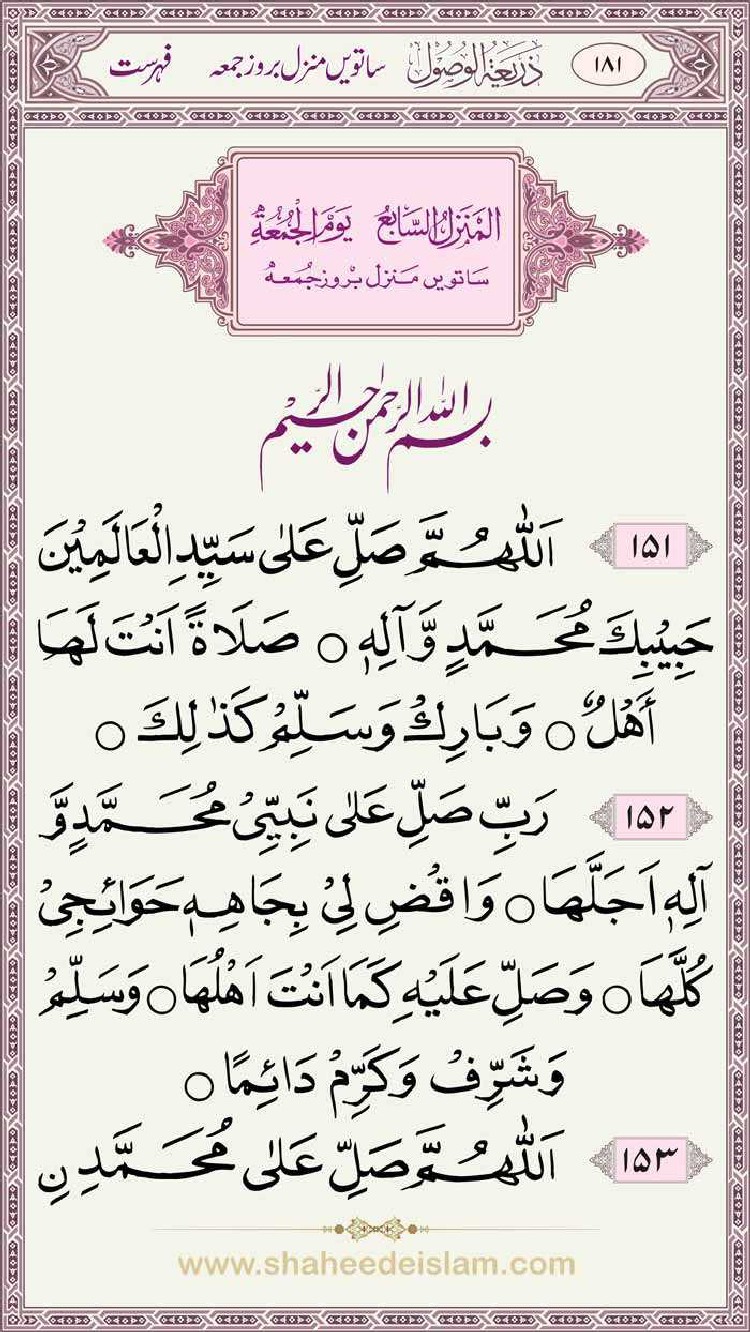 ۱۸۱ ذَرِيعَةُ الْوُصُوْل ساتویں منزل بروز جمعہ فہرست
اَلْمَنْزِلُ السَّابِعُ يَوْمَ الْجُمُعَةِ
ساتویں منزل بروز جُمعہ
بسم الله الرحمن الرحيم
۱۵۱ اَللّٰهُمَّ صَلِّ عَلٰی سَيِّدِ الْعَالَمِيْنَ
حَبِيْبِكَ مُحَمَّدٍ وَّآلِهٖ ○ صَلَاةً اَنْتَ لَهَا
أَهْلٌ ○ وَبَارِكْ وَسَلِّمْ كَذٰلِكَ ○
۱۵۲ رَبِّ صَلِّ عَلٰی نَبِيِّيْ مُحَمَّدٍ وَّ
آلِهٖ اَجَلَّهَا ○ وَاقْضِ لِيْ بِجَاهِهٖ حَوَائِجِيْ
كُلَّهَا ○ وَصَلِّ عَلَيْهِ كَمَا اَنْتَ اَهْلُهَا ○ وَسَلِّمْ
وَشَرِّفْ وَكَرِّمْ دَائِمًا ○
۱۵۳ اَللّٰهُمَّ صَلِّ عَلٰی مُحَمَّدِنِ
www.shaheedeislam.com